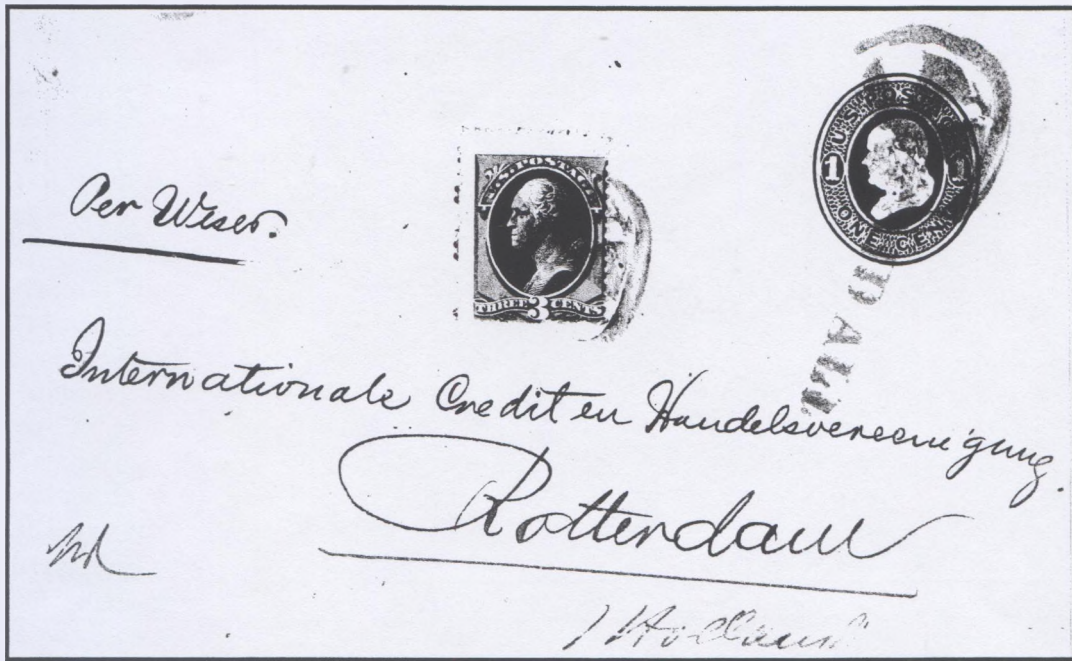 Per Weser.
U.S. POSTAGE
THREE 3 CENTS
U.S. POSTAGE
1 1
ONE CENT
PD ALL
Internationale Crediet en Handelsvereeniging.
Rotterdam
Holland